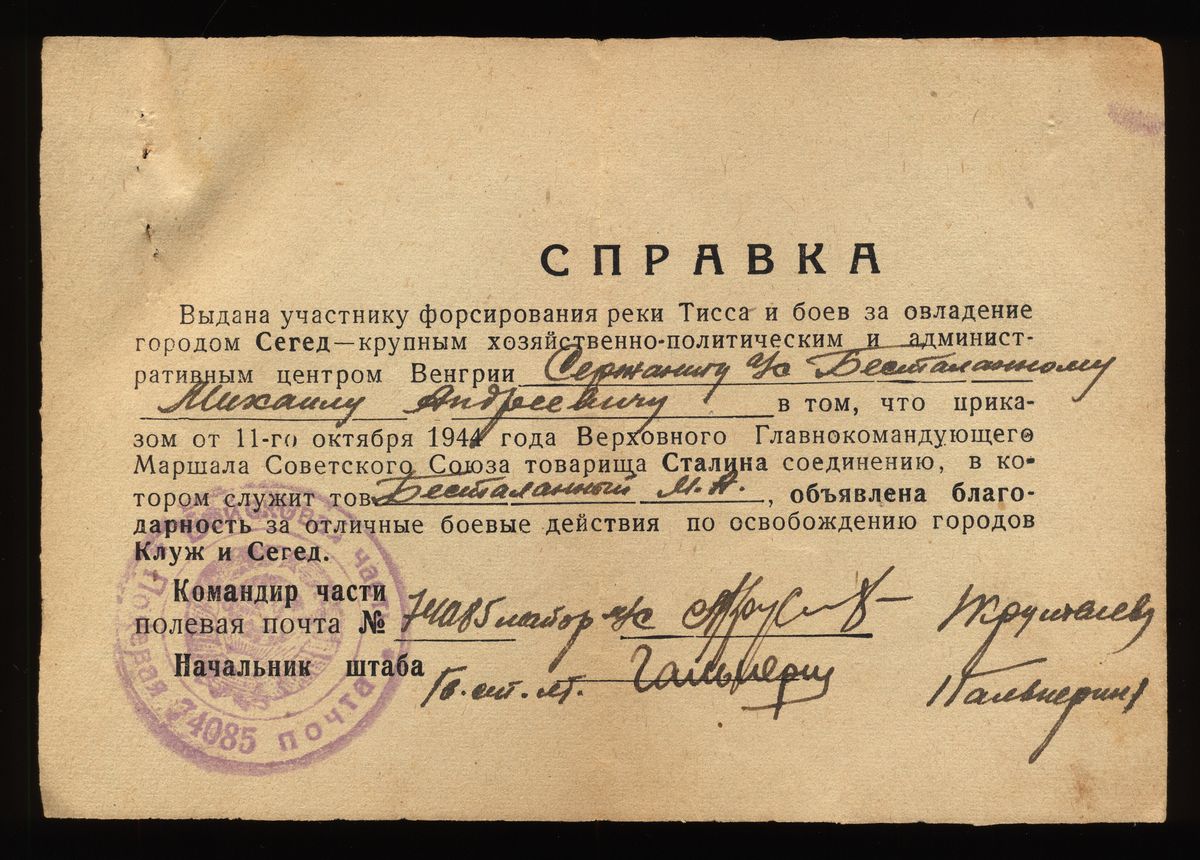 СПРАВКА
Выдана участнику форсирования реки Тисса и боев за овладение
городом Сегед—крупным хозяйственно-политическим и админист-
ративным центром Венгрии Сержанту а/с Бесталанному
Михаилу Андреевичу в том, что прика-
зом от 11-го октября 1944 года Верховного Главнокомандующего
Маршала Советского Союза товарища Сталина соединению, в ко-
тором служит тов. Бесталанный М. А., объявлена благо-
дарность за отличные боевые действия по освобождению городов
Клуж и Сегед.
Командир части
полевая почта № 74085 майор а/с
Начальник штаба
Гв. ст. лт. Гальперин Гальперин
Войсковая часть
Полевая почта
74085